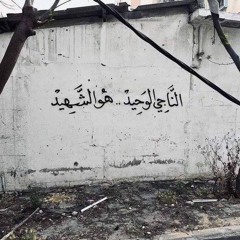 النَّاجي الوَحِيدْ .. هُو الشَّهِيدْ